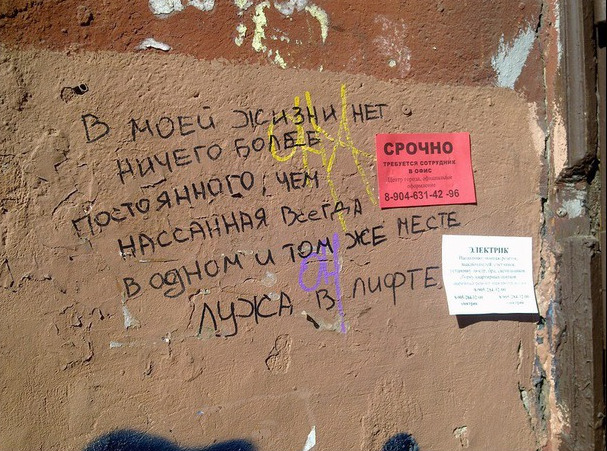 В МОЕЙ ЖИЗНИ НЕТ
НИЧЕГО БОЛЕЕ
ПОСТОЯННОГО, ЧЕМ
НАССАННАЯ ВСЕГДА
В ОДНОМ И ТОМ ЖЕ МЕСТЕ
ЛУЖА В ЛИФТЕ.
СРОЧНО
ТРЕБУЕТСЯ СОТРУДНИК
В ОФИС
Центр города, официальное
оформление
8-904-631-42-96
ЭЛЕКТРИК